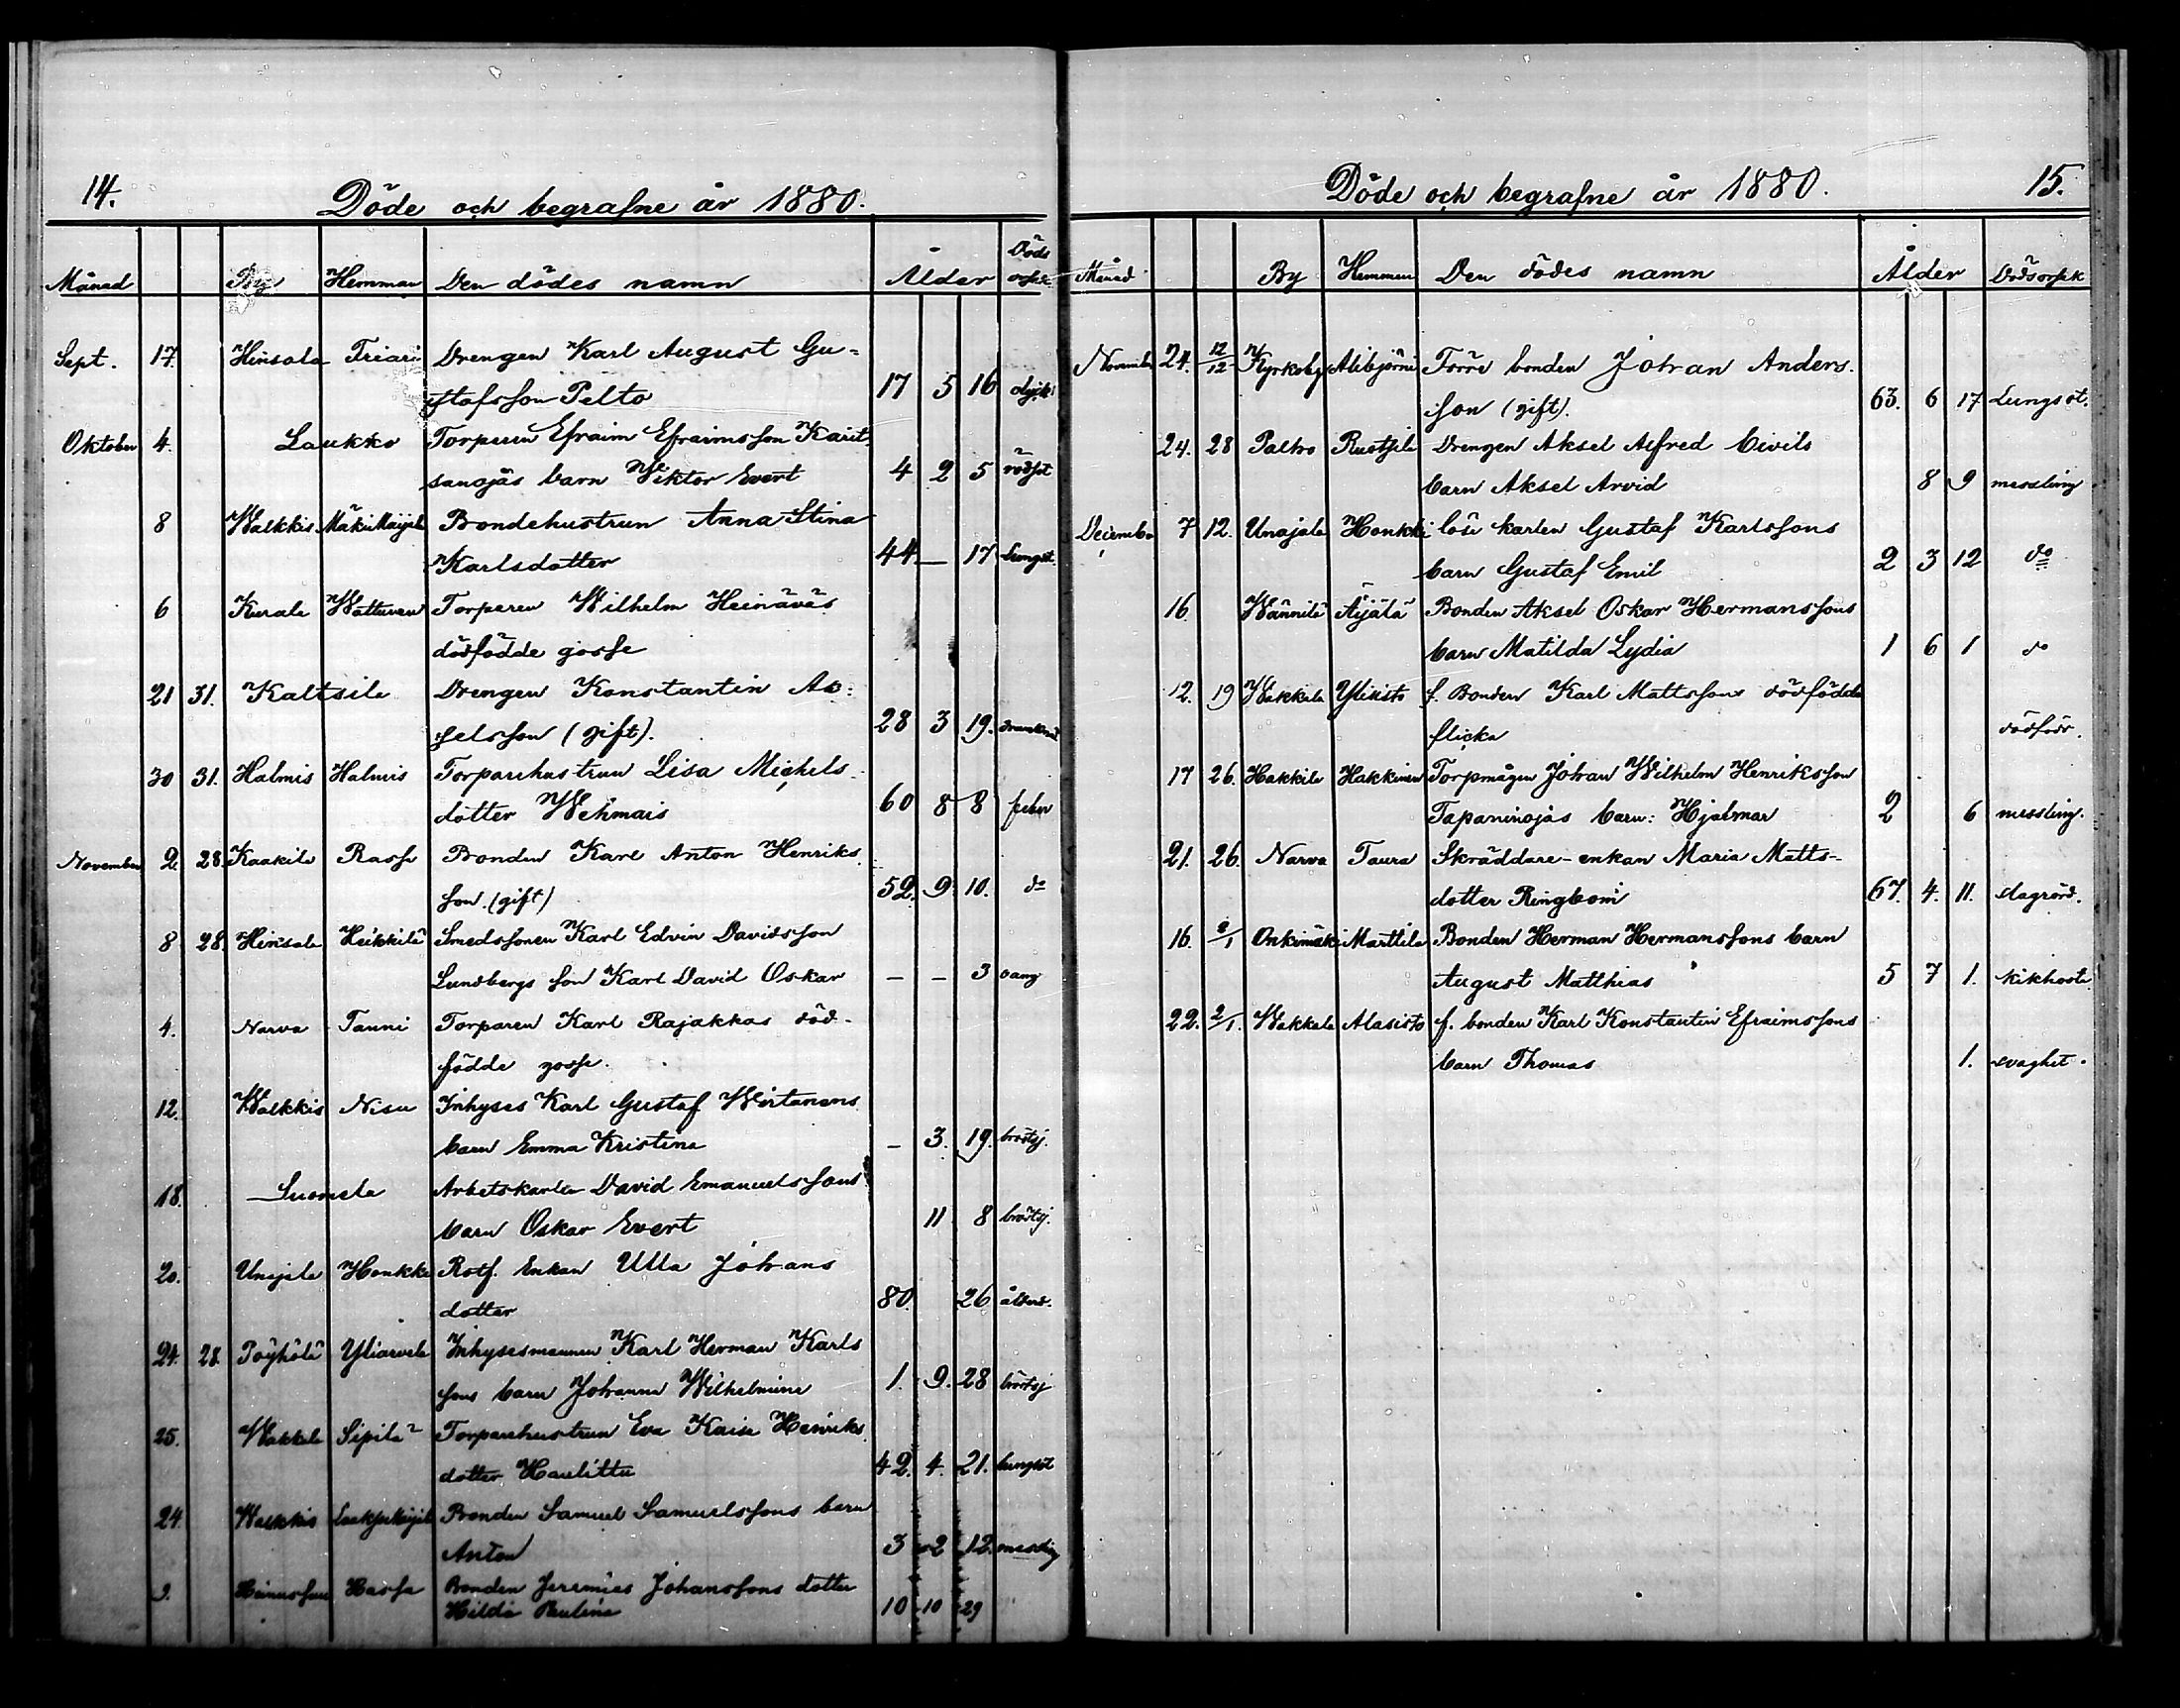 14.
Döde och begrafne år 1880.
Månad By Hemman Den dödes namn Ålder Döds
orsak
Sept. 17. Hinsala Friari Drengen Karl August Gu-
stafsson Pelto 17 5 16
Oktober 4. Laukko Torparen Efraim Efraimsson
barn Wiktor Evert 4 2 5 rödsot
8 Walkkis Mäki Maijala Bondehustrun Anna Stina
Karlsdotter 44 — 17 Lungsot
6 Kurala Wattuven Torparen Wilhelm Heinäväs
dödfödde gosse
21 31. Kaltsila Drengen Konstantin Ak-
selsson (gift). 28 3 19.
30 31. Halmis Halmis Torparehustrun Lisa Michels
dotter Wehmais 60 8 8 feber
November 2 28 Kaakila Rasse Bonden Karl Anton Henriks
son (gift) 52. 9 10. do
8 28 Hinsala Heikkilä Smedssonen Karl Edvin Davidsson
Lundbergs son Karl David Oskar — — 3
4. Narva Tanni Torparen Karl Rajakkas död-
födde gosse.
12. Walkkis Nisu Inhyses Karl Gustaf Wirtanens
barn Emma Kristina — 3. 19. bröstsj.
18. Suomela Arbetskarlen David Emanuelssons
barn Oskar Evert 11 8 bröstsj.
20. Unajala Honkki Rotf. Enkan Ulla Johans
dotter 80. 26 ålderd.
24. 28. Pöyhölä Yliarvela Inhysesmannen Karl Herman Karls
sons barn Johanna Wilhelmina 1. 9. 28 bröstsj
25. Wakkala Sipilä Torparehustrun Eva Kaisa Henriks
dotter Haulittu 42. 4. 21. lungsot
24. Walkkis Bonden Samuel Samuelssons barn
Anton 3 2 12. messling
9. Hassa Bonden Jeremias Johanssons dotter
Hilda Paulina 10 10 29
Döde och begrafne år 1880. 15.
Månad By Hemman Den dödes namn Ålder Dödsorsak
November 24. 12/12 Kyrkoby Alibjörni Förre bonden Johan Anders-
son (gift). 63. 6 17 Lungsot.
24. 28 Palho Rustsila Drengen Aksel Alfred Civils
barn Aksel Arvid 8 9 messling
December 7 12. Unajala Honkki löse karlen Gustaf Karlssons
barn Gustaf Emil 2 3 12 do
16. Wännilä Äijälä Bonden Aksel Oskar Hermanssons
barn Matilda Lydia 1 6 1 do
12. 19 Wakkala Yliristo f. Bonden Karl Mattssons dödfödda
flicka dödfödd.
17 26. Hakkila Hakkinen Torpmågen Johan Wilhelm Henriksson
Tapaninojas barn: Hjalmar 2 6 messling.
21. 26. Narva Taura Skräddare-enkan Maria Matts-
dotter Ringbom 67. 4. 11. slagrörd.
16. 2/1 Onkimäki Marttila Bonden Herman Hermanssons barn
August Matthias 5 7 1. kikhosta.
22. 2/1. Wakkala Alasisto f. bonden Karl Konstantin Efraimssons
barn Thomas 1. svaghet.